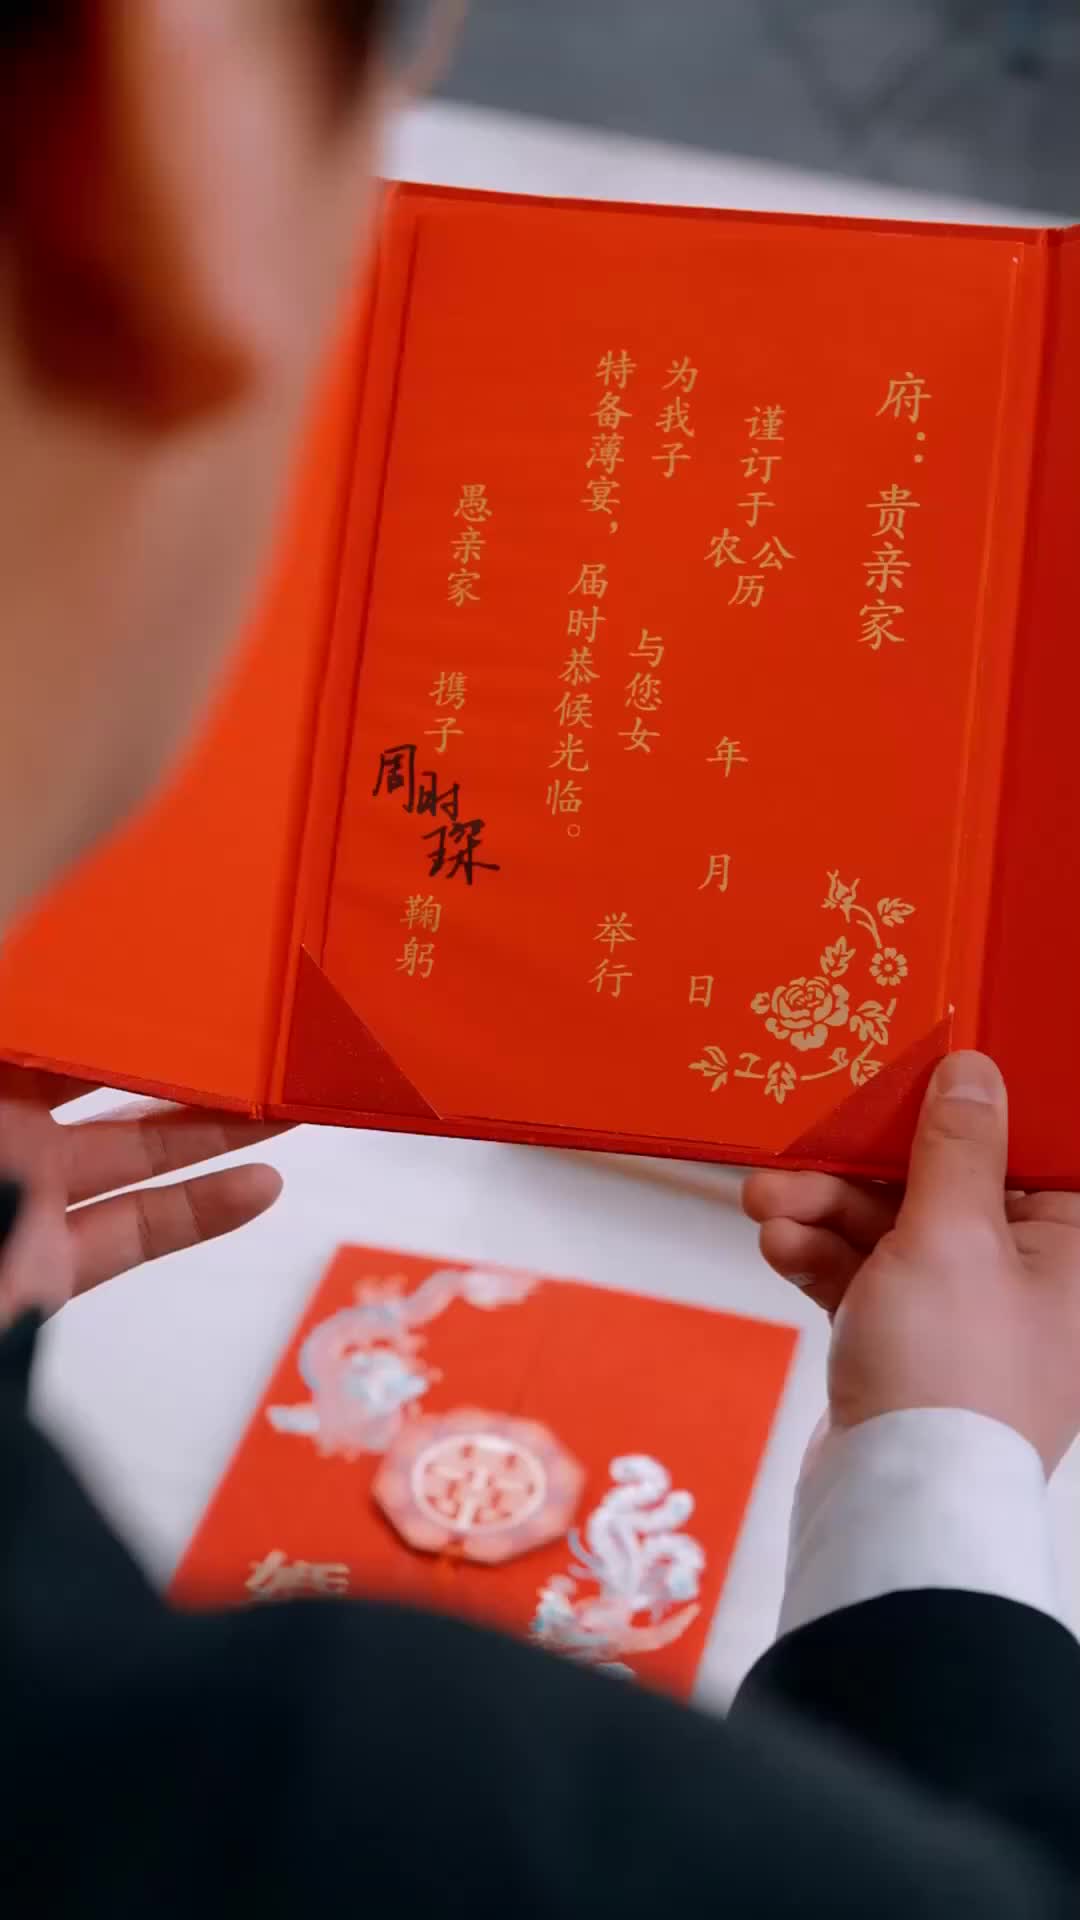 府：贵亲家
谨订于公历
农历
年 月 日
为我子 与您女 举行
特备薄宴，届时恭候光临。
愚亲家 携子 周时琛 鞠躬